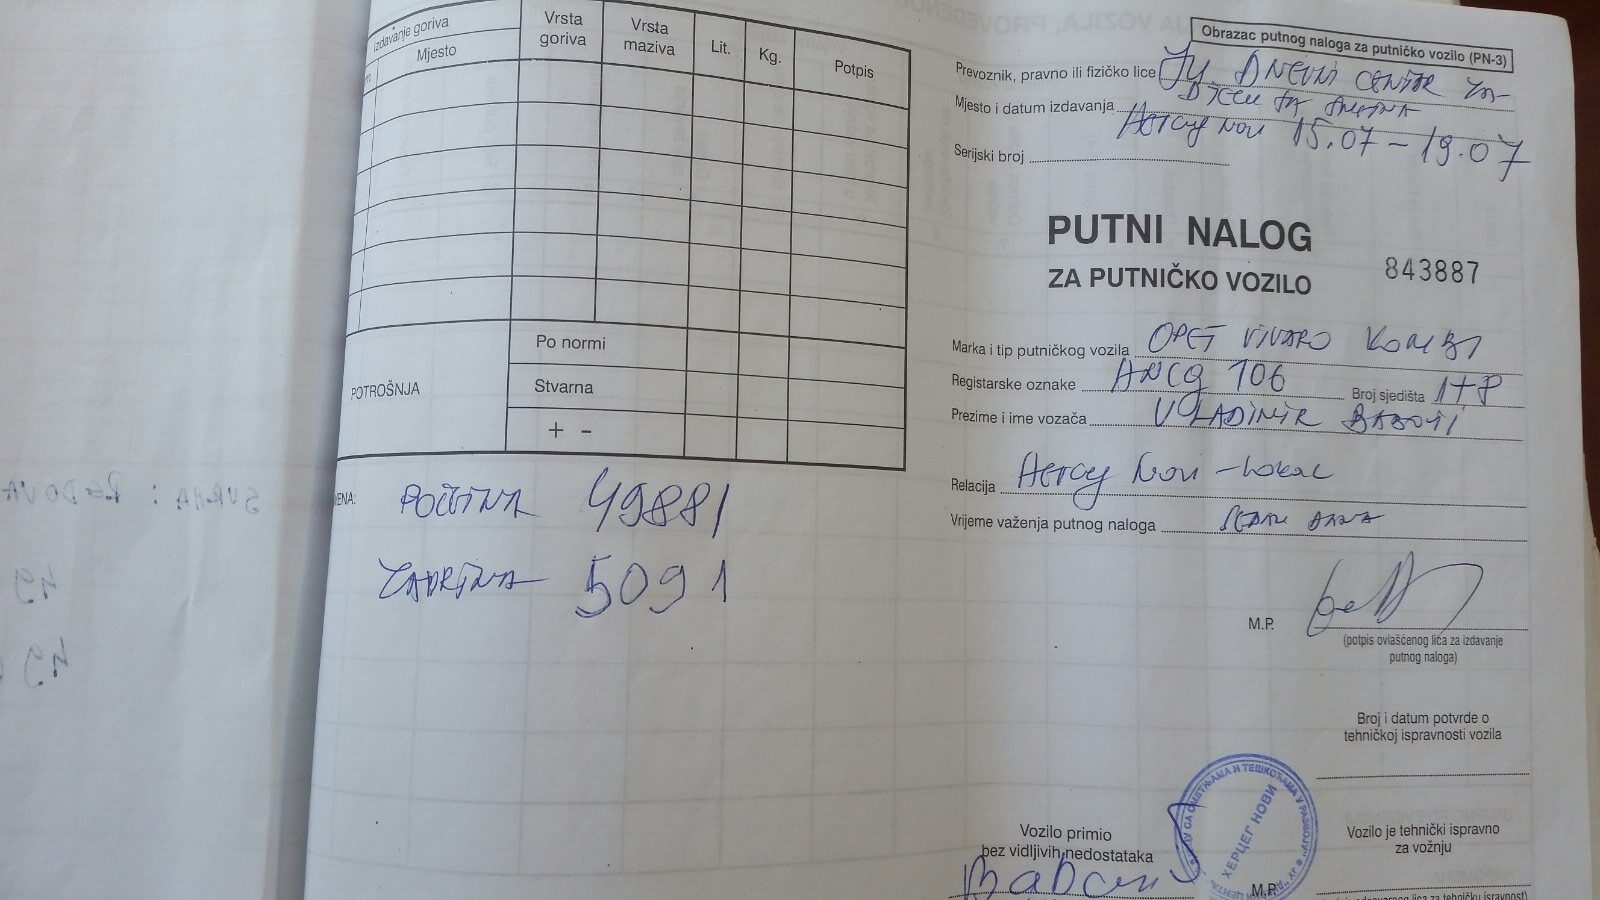 Izdavanje goriva
Mjesto
Vrsta goriva
Vrsta maziva
Lit.
Kg.
Potpis
POTROŠNJA
Po normi
Stvarna
+ -
POČETNA 49881
ZADRŽNA 5091
Obrazac putnog naloga za putničko vozilo (PN-3)
Prevoznik, pravno ili fizičko lice JU DNEVNI CENTAR ZA
Mjesto i datum izdavanja
Herceg Novi 15.07 - 19.07
Serijski broj
PUTNI NALOG
ZA PUTNIČKO VOZILO
843887
Marka i tip putničkog vozila OPEL VIVARO KOMBI
Registarske oznake HNCG 106 Broj sjedišta 1+8
Prezime i ime vozača VLADIMIR
Relacija Herceg Novi - lokal
Vrijeme važenja putnog naloga
M.P.
(potpis ovlašćenog lica za izdavanje
putnog naloga)
Broj i datum potvrde o
tehničkoj ispravnosti vozila
Vozilo primio
bez vidljivih nedostataka
Vozilo je tehnički ispravno
za vožnju
ХЕРЦЕГ НОВИ
M.P.